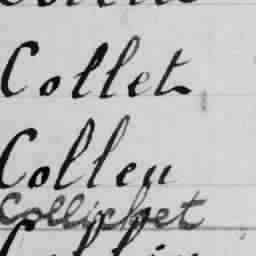 Collet
Colleu
Collichet